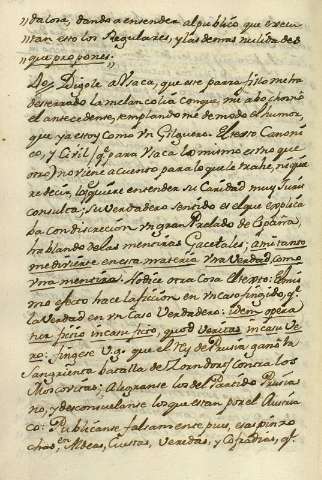 „dalosa, dando a entender al publico, que execu-
„tan esto los Regulares, y las demas nulidades
„que propones.
Digole a Vsaca, que este parrafillo me ha
desterrado la melancolia conque me abochornó
el antecedente, templandome de modo el humor,
que ya estoy como vn Gilguero. El texto Canoni-
co, y Civil (q.e para Vsaca lo mismo es vno que
otro) no viene a cuento para lo que le trahe, ni quie-
re decir, lo q.e quiere entender su Caridad muy Suar
consulta; su verdadero sentido es el que explica-
ba con discrecion vn gran Prelado de España,
hablando de las mentiras Gacetales; a mi tanto
me divierte en esta materia vna verdad, como
vna mentira. No dice otra cosa el texto: El mis-
mo efecto hace la ficcion en vn caso fingido, q.e
la verdad en vn Caso Verdadero: idem opera-
tur fictio in casu ficto, quod Veritas in casu Ve-
ro: fingese v.g. que el Rey de Prusia ganó la
Sangrienta batalla de Zorndorf contra los
Moscovitas; alegranse los del Partido Prusia-
no, y desconsuelanse los que estan por el Austria-
co: Publicanse falsamente pues, esas pinzo-
chas en Aldeas, Cuestas, Veredas, y Cofradias, q.e